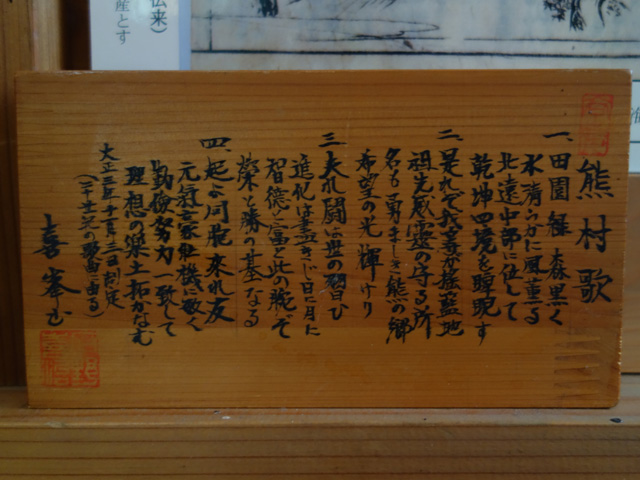 熊村歌
一、田園緑 森黒く
水清らかに風薫る
北遠中部に位して
乾坤四境を睥睨す
二、是れぞ我等が揺藍地
祖先威霊の守る所
名も勇ましき熊の郷
希望の光輝けり
三、夫れ闘は世の習ひ
進化は盡きじ日に月に
智徳と富と此の戦ぞ
榮と勝の基なる
四、起よ同胞来れ友
元氣豪壮機に敏く
勤倹努力一致して
理想の楽土拓かなむ
大正三年十一月三日制定
喜峯書
伝来）
産とす